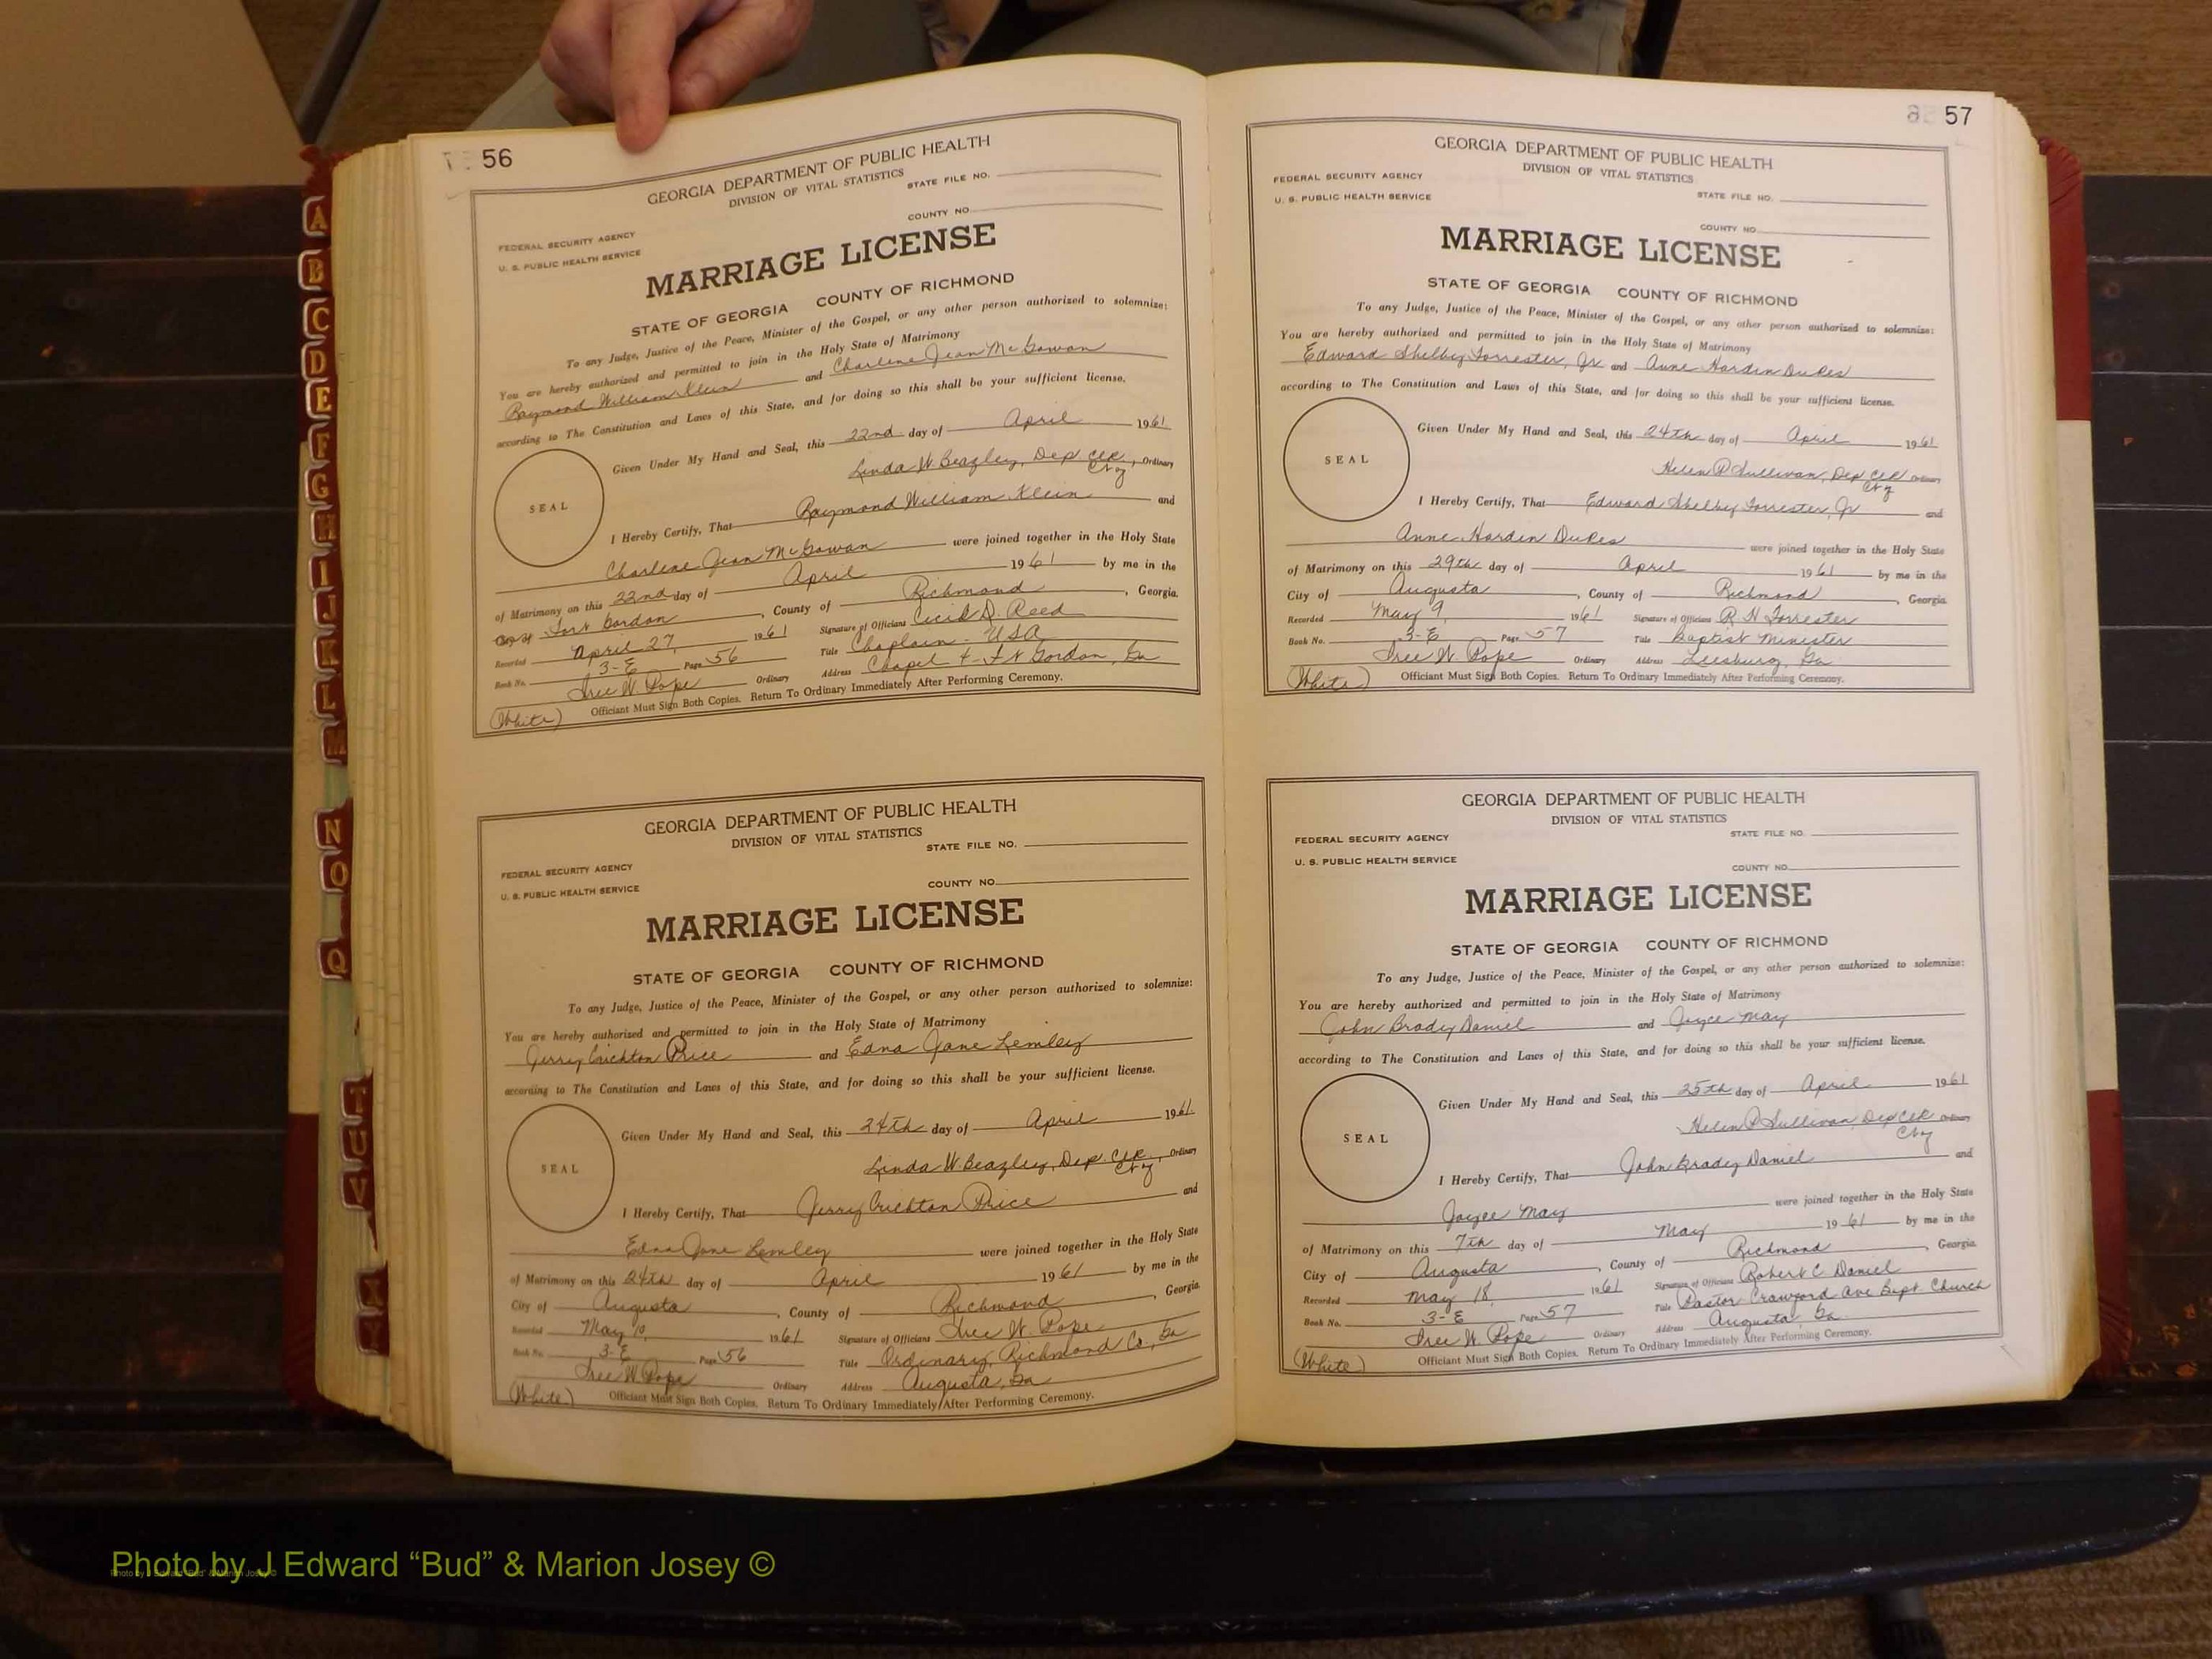 56
GEORGIA DEPARTMENT OF PUBLIC HEALTH
DIVISION OF VITAL STATISTICS
STATE FILE NO.
COUNTY NO.
FEDERAL SECURITY AGENCY
U. S. PUBLIC HEALTH SERVICE
MARRIAGE LICENSE
STATE OF GEORGIA COUNTY OF RICHMOND
To any Judge, Justice of the Peace, Minister of the Gospel, or any other person authorized to solemnize:
You are hereby authorized and permitted to join in the Holy State of Matrimony
Raymond William Klein and Charlene Jean McGowan
according to The Constitution and Laws of this State, and for doing so this shall be your sufficient license.
Given Under My Hand and Seal, this 22nd day of April 1961
Linda W. Beazley, Dep Clk, Ordinary
SEAL
I Hereby Certify, That Raymond William Klein and
Charlene Jean McGowan were joined together in the Holy State
of Matrimony on this 22nd day of April 1961 by me in the
City of Fort Gordon, County of Richmond, Georgia.
Recorded April 27, 1961 Signature of Officiant Cecil D. Reed
Book No. 3-E Page 56 Title Chaplain - USA
Tree W. Pope Ordinary Address Chapel 4 - Ft Gordon, Ga
(White) Officiant Must Sign Both Copies. Return To Ordinary Immediately After Performing Ceremony.
GEORGIA DEPARTMENT OF PUBLIC HEALTH
DIVISION OF VITAL STATISTICS
STATE FILE NO.
FEDERAL SECURITY AGENCY
U. S. PUBLIC HEALTH SERVICE
COUNTY NO.
MARRIAGE LICENSE
STATE OF GEORGIA COUNTY OF RICHMOND
To any Judge, Justice of the Peace, Minister of the Gospel, or any other person authorized to solemnize:
You are hereby authorized and permitted to join in the Holy State of Matrimony
Jerry Crichton Price and Edna Jane Lemley
according to The Constitution and Laws of this State, and for doing so this shall be your sufficient license.
Given Under My Hand and Seal, this 24th day of April 1961
Linda W. Beazley, Dep. Clk, Ordinary
SEAL
I Hereby Certify, That Jerry Crichton Price and
Edna Jane Lemley were joined together in the Holy State
of Matrimony on this 24th day of April 1961 by me in the
City of Augusta, County of Richmond, Georgia
Recorded May 10, 1961 Signature of Officiant Tree W. Pope
Book No. 3-E Page 56 Title Ordinary, Richmond Co, Ga
Tree W. Pope Ordinary Address Augusta, Ga
(White) Officiant Must Sign Both Copies. Return To Ordinary Immediately After Performing Ceremony.
57
GEORGIA DEPARTMENT OF PUBLIC HEALTH
DIVISION OF VITAL STATISTICS
FEDERAL SECURITY AGENCY
U. S. PUBLIC HEALTH SERVICE
STATE FILE NO.
COUNTY NO.
MARRIAGE LICENSE
STATE OF GEORGIA COUNTY OF RICHMOND
To any Judge, Justice of the Peace, Minister of the Gospel, or any other person authorized to solemnize:
You are hereby authorized and permitted to join in the Holy State of Matrimony
Edward Shelby Forrester, Jr and Anne Hardin Dukes
according to The Constitution and Laws of this State, and for doing so this shall be your sufficient license.
Given Under My Hand and Seal, this 24th day of April 1961
Helen P Sullivan, Dep Clk Ordinary
SEAL
I Hereby Certify, That Edward Shelby Forrester, Jr and
Anne Hardin Dukes were joined together in the Holy State
of Matrimony on this 29th day of April 1961 by me in the
City of Augusta, County of Richmond, Georgia.
Recorded May 9 1961 Signature of Officiant R H Forrester
Book No. 3-E Page 57 Title Baptist Minister
Tree W. Pope Ordinary Address Leesburg, Ga
(White) Officiant Must Sign Both Copies. Return To Ordinary Immediately After Performing Ceremony.
GEORGIA DEPARTMENT OF PUBLIC HEALTH
DIVISION OF VITAL STATISTICS
STATE FILE NO.
FEDERAL SECURITY AGENCY
U. S. PUBLIC HEALTH SERVICE
COUNTY NO.
MARRIAGE LICENSE
STATE OF GEORGIA COUNTY OF RICHMOND
To any Judge, Justice of the Peace, Minister of the Gospel, or any other person authorized to solemnize:
You are hereby authorized and permitted to join in the Holy State of Matrimony
John Brady Daniel and Joyce May
according to The Constitution and Laws of this State, and for doing so this shall be your sufficient license.
Given Under My Hand and Seal, this 25th day of April 1961
Helen P Sullivan, Dep Clk Ordinary
SEAL
I Hereby Certify, That John Brady Daniel and
Joyce May were joined together in the Holy State
of Matrimony on this 7th day of May 1961 by me in the
City of Augusta, County of Richmond, Georgia.
Recorded May 18, 1961 Signature of Officiant Robert C. Daniel
Book No. 3-E Page 57 Title Pastor Crawford Ave Bapt. Church
Tree W. Pope Ordinary Address Augusta, Ga
(White) Officiant Must Sign Both Copies. Return To Ordinary Immediately After Performing Ceremony.
A
B
C
D
E
F
G
H
I
J
K
L
M
N
O
Q
T
U
V
Y
Photo by J Edward “Bud” & Marion Josey ©
Photo by J Edward “Bud” & Marion Josey ©